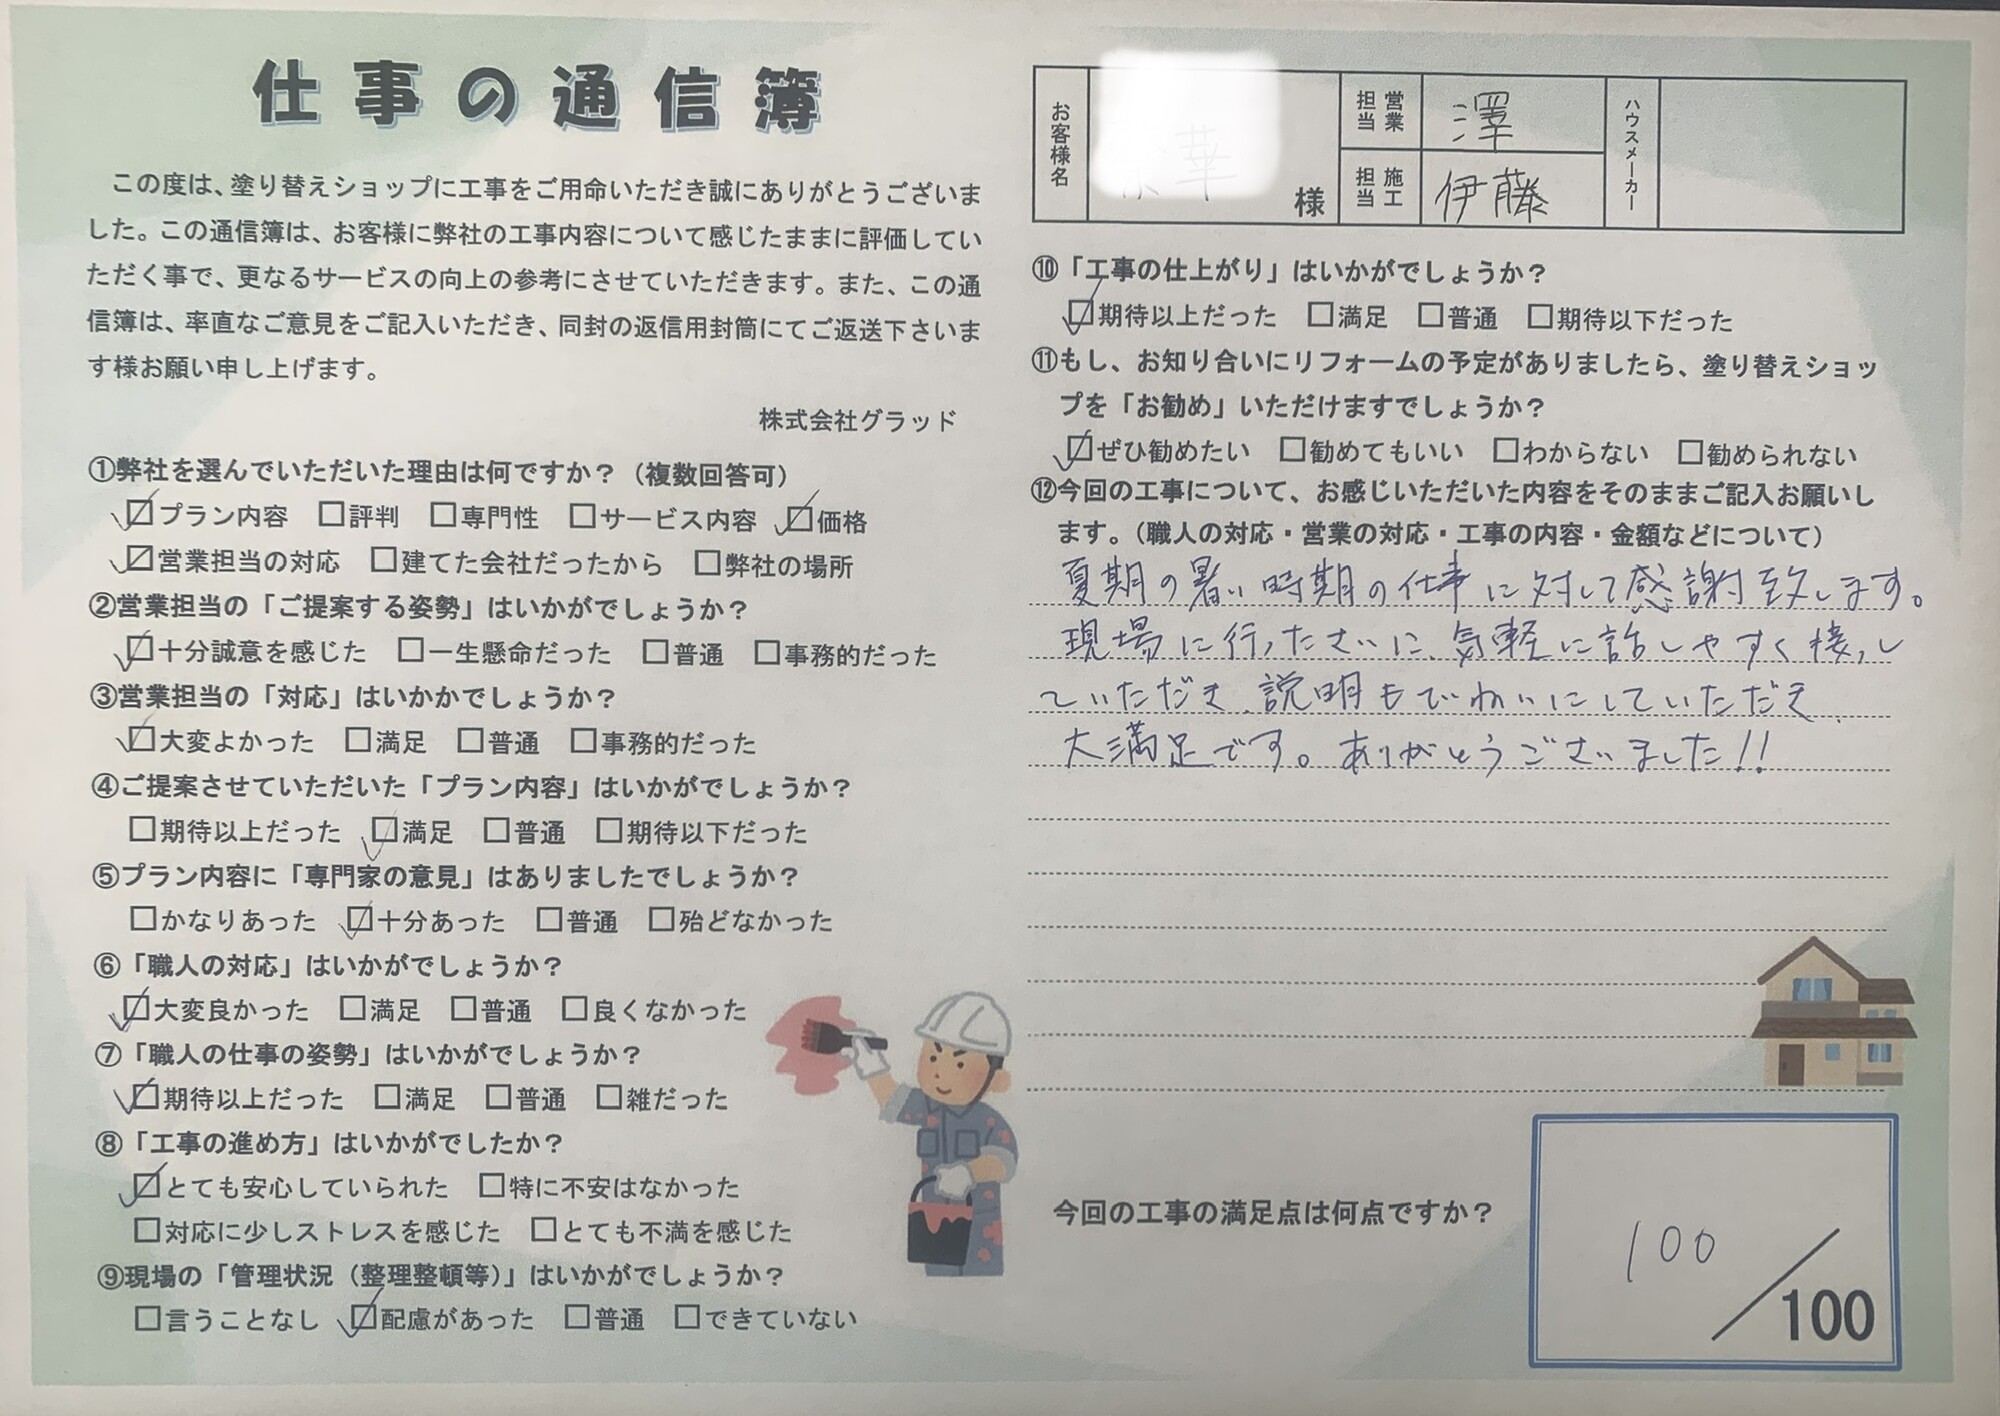 仕事の通信簿
この度は、塗り替えショップに工事をご用命いただき誠にありがとうございま
した。この通信簿は、お客様に弊社の工事内容について感じたままに評価してい
ただく事で、更なるサービスの向上の参考にさせていただきます。また、この通
信簿は、率直なご意見をご記入いただき、同封の返信用封筒にてご返送下さいま
す様お願い申し上げます。
株式会社グラッド
①弊社を選んでいただいた理由は何ですか？（複数回答可）
☑プラン内容 □評判 □専門性 □サービス内容 ☑価格
☑営業担当の対応 □建てた会社だったから □弊社の場所
②営業担当の「ご提案する姿勢」はいかがでしょうか？
☑十分誠意を感じた □一生懸命だった □普通 □事務的だった
③営業担当の「対応」はいかかでしょうか？
☑大変よかった □満足 □普通 □事務的だった
④ご提案させていただいた「プラン内容」はいかがでしょうか？
□期待以上だった ☑満足 □普通 □期待以下だった
⑤プラン内容に「専門家の意見」はありましたでしょうか？
□かなりあった ☑十分あった □普通 □殆どなかった
⑥「職人の対応」はいかがでしょうか？
☑大変良かった □満足 □普通 □良くなかった
⑦「職人の仕事の姿勢」はいかがでしょうか？
☑期待以上だった □満足 □普通 □雑だった
⑧「工事の進め方」はいかがでしたか？
☑とても安心していられた □特に不安はなかった
□対応に少しストレスを感じた □とても不満を感じた
⑨現場の「管理状況（整理整頓等）」はいかがでしょうか？
□言うことなし ☑配慮があった □普通 □できていない
お客様名
様
営業担当
澤
施工担当
伊藤
ハウスメーカー
⑩「工事の仕上がり」はいかがでしょうか？
☑期待以上だった □満足 □普通 □期待以下だった
⑪もし、お知り合いにリフォームの予定がありましたら、塗り替えショッ
プを「お勧め」いただけますでしょうか？
☑ぜひ勧めたい □勧めてもいい □わからない □勧められない
⑫今回の工事について、お感じいただいた内容をそのままご記入お願いし
ます。（職人の対応・営業の対応・工事の内容・金額などについて）
夏期の暑い時期の仕事に対して感謝致します。
現場に行ったさいに、気軽に話しやすく接し
ていただき、説明もていねいにしていただき、
大満足です。ありがとうございました!!
今回の工事の満足点は何点ですか？
100／100